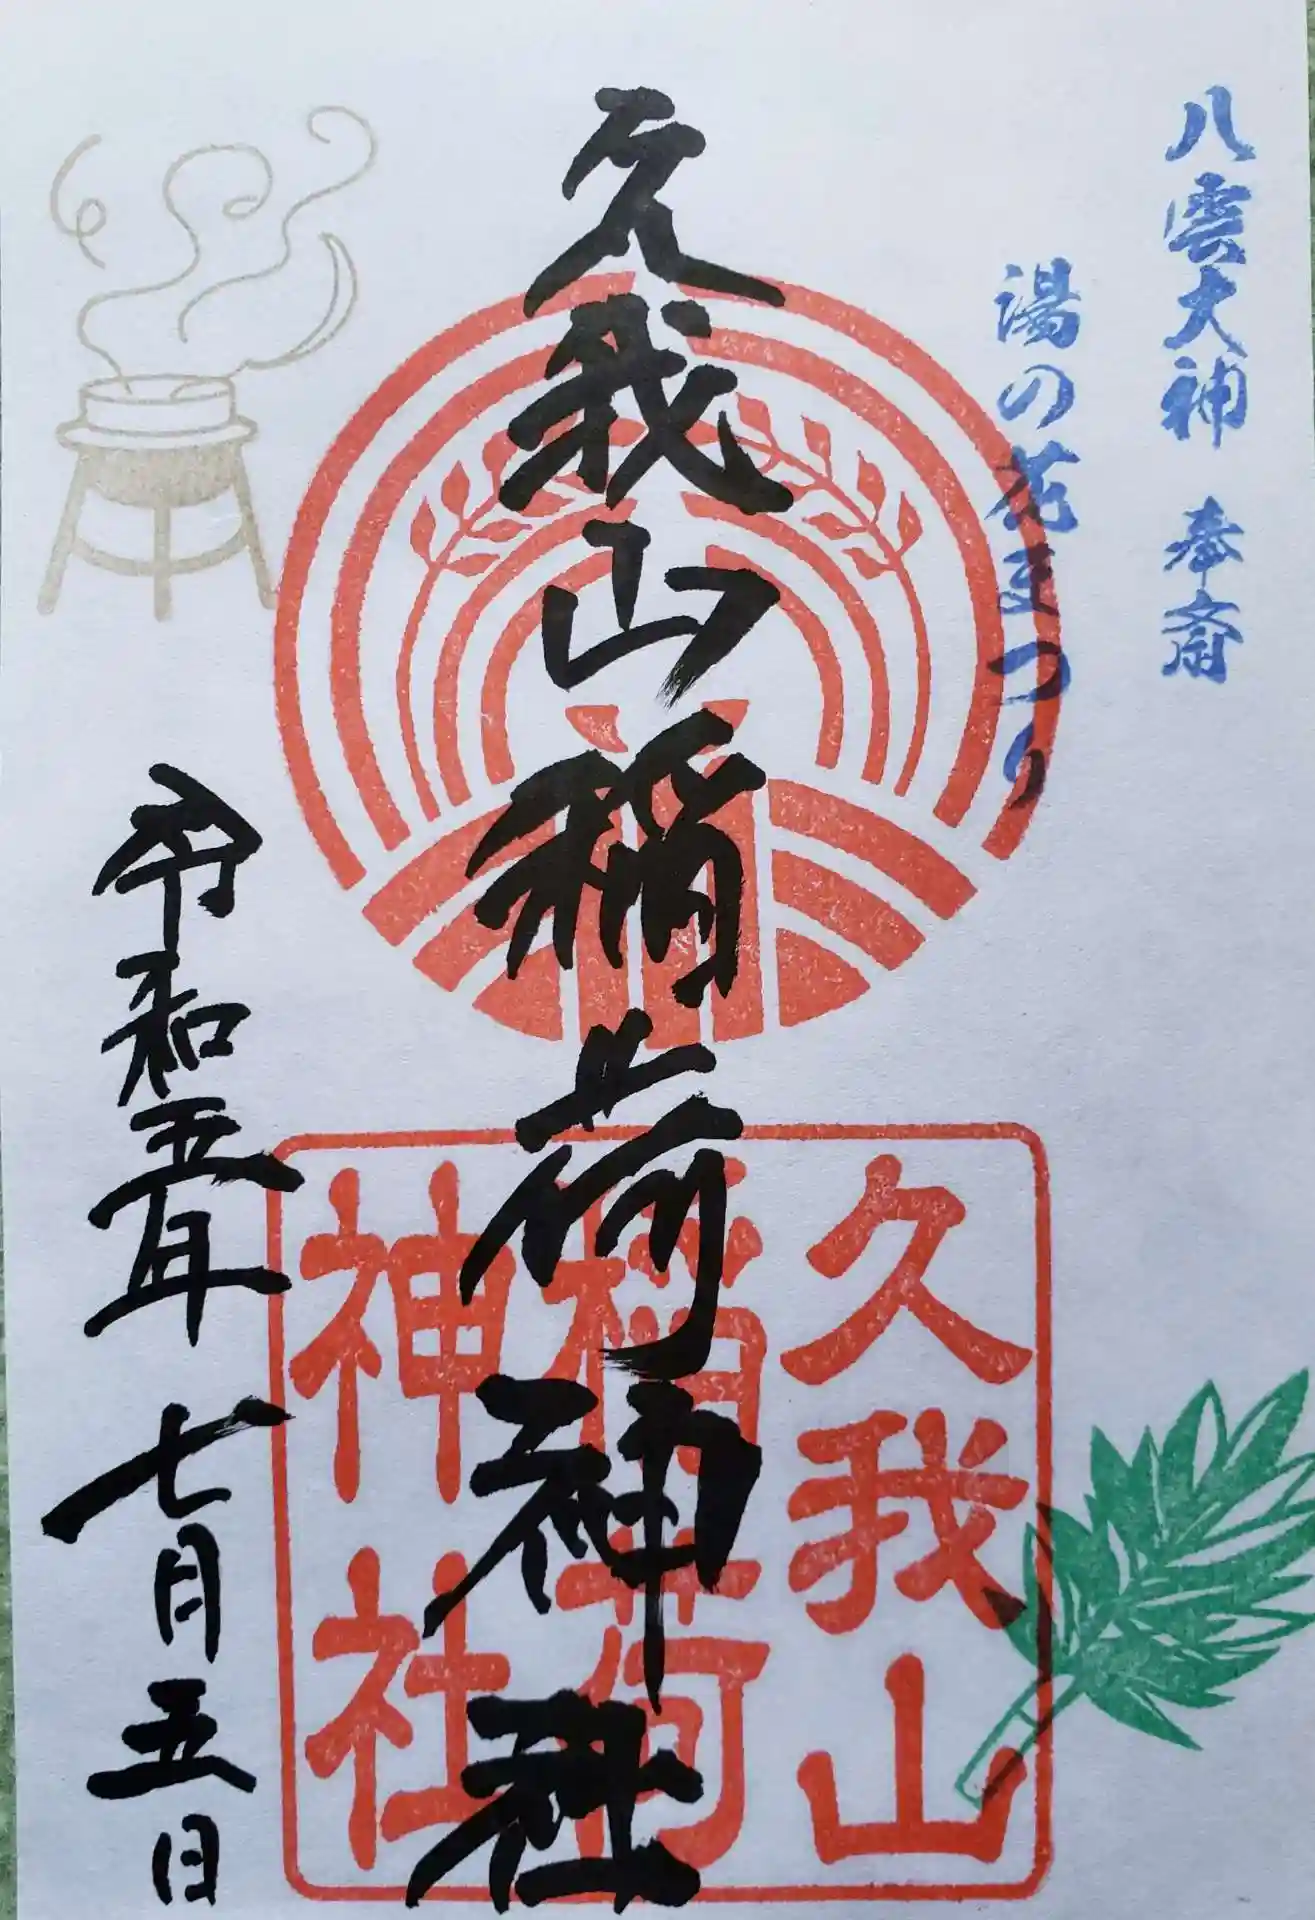 八雲大神 奉斎
湯の花まつり
久我山稲荷神社
久我山
稲荷
神社
令和五年 七月五日